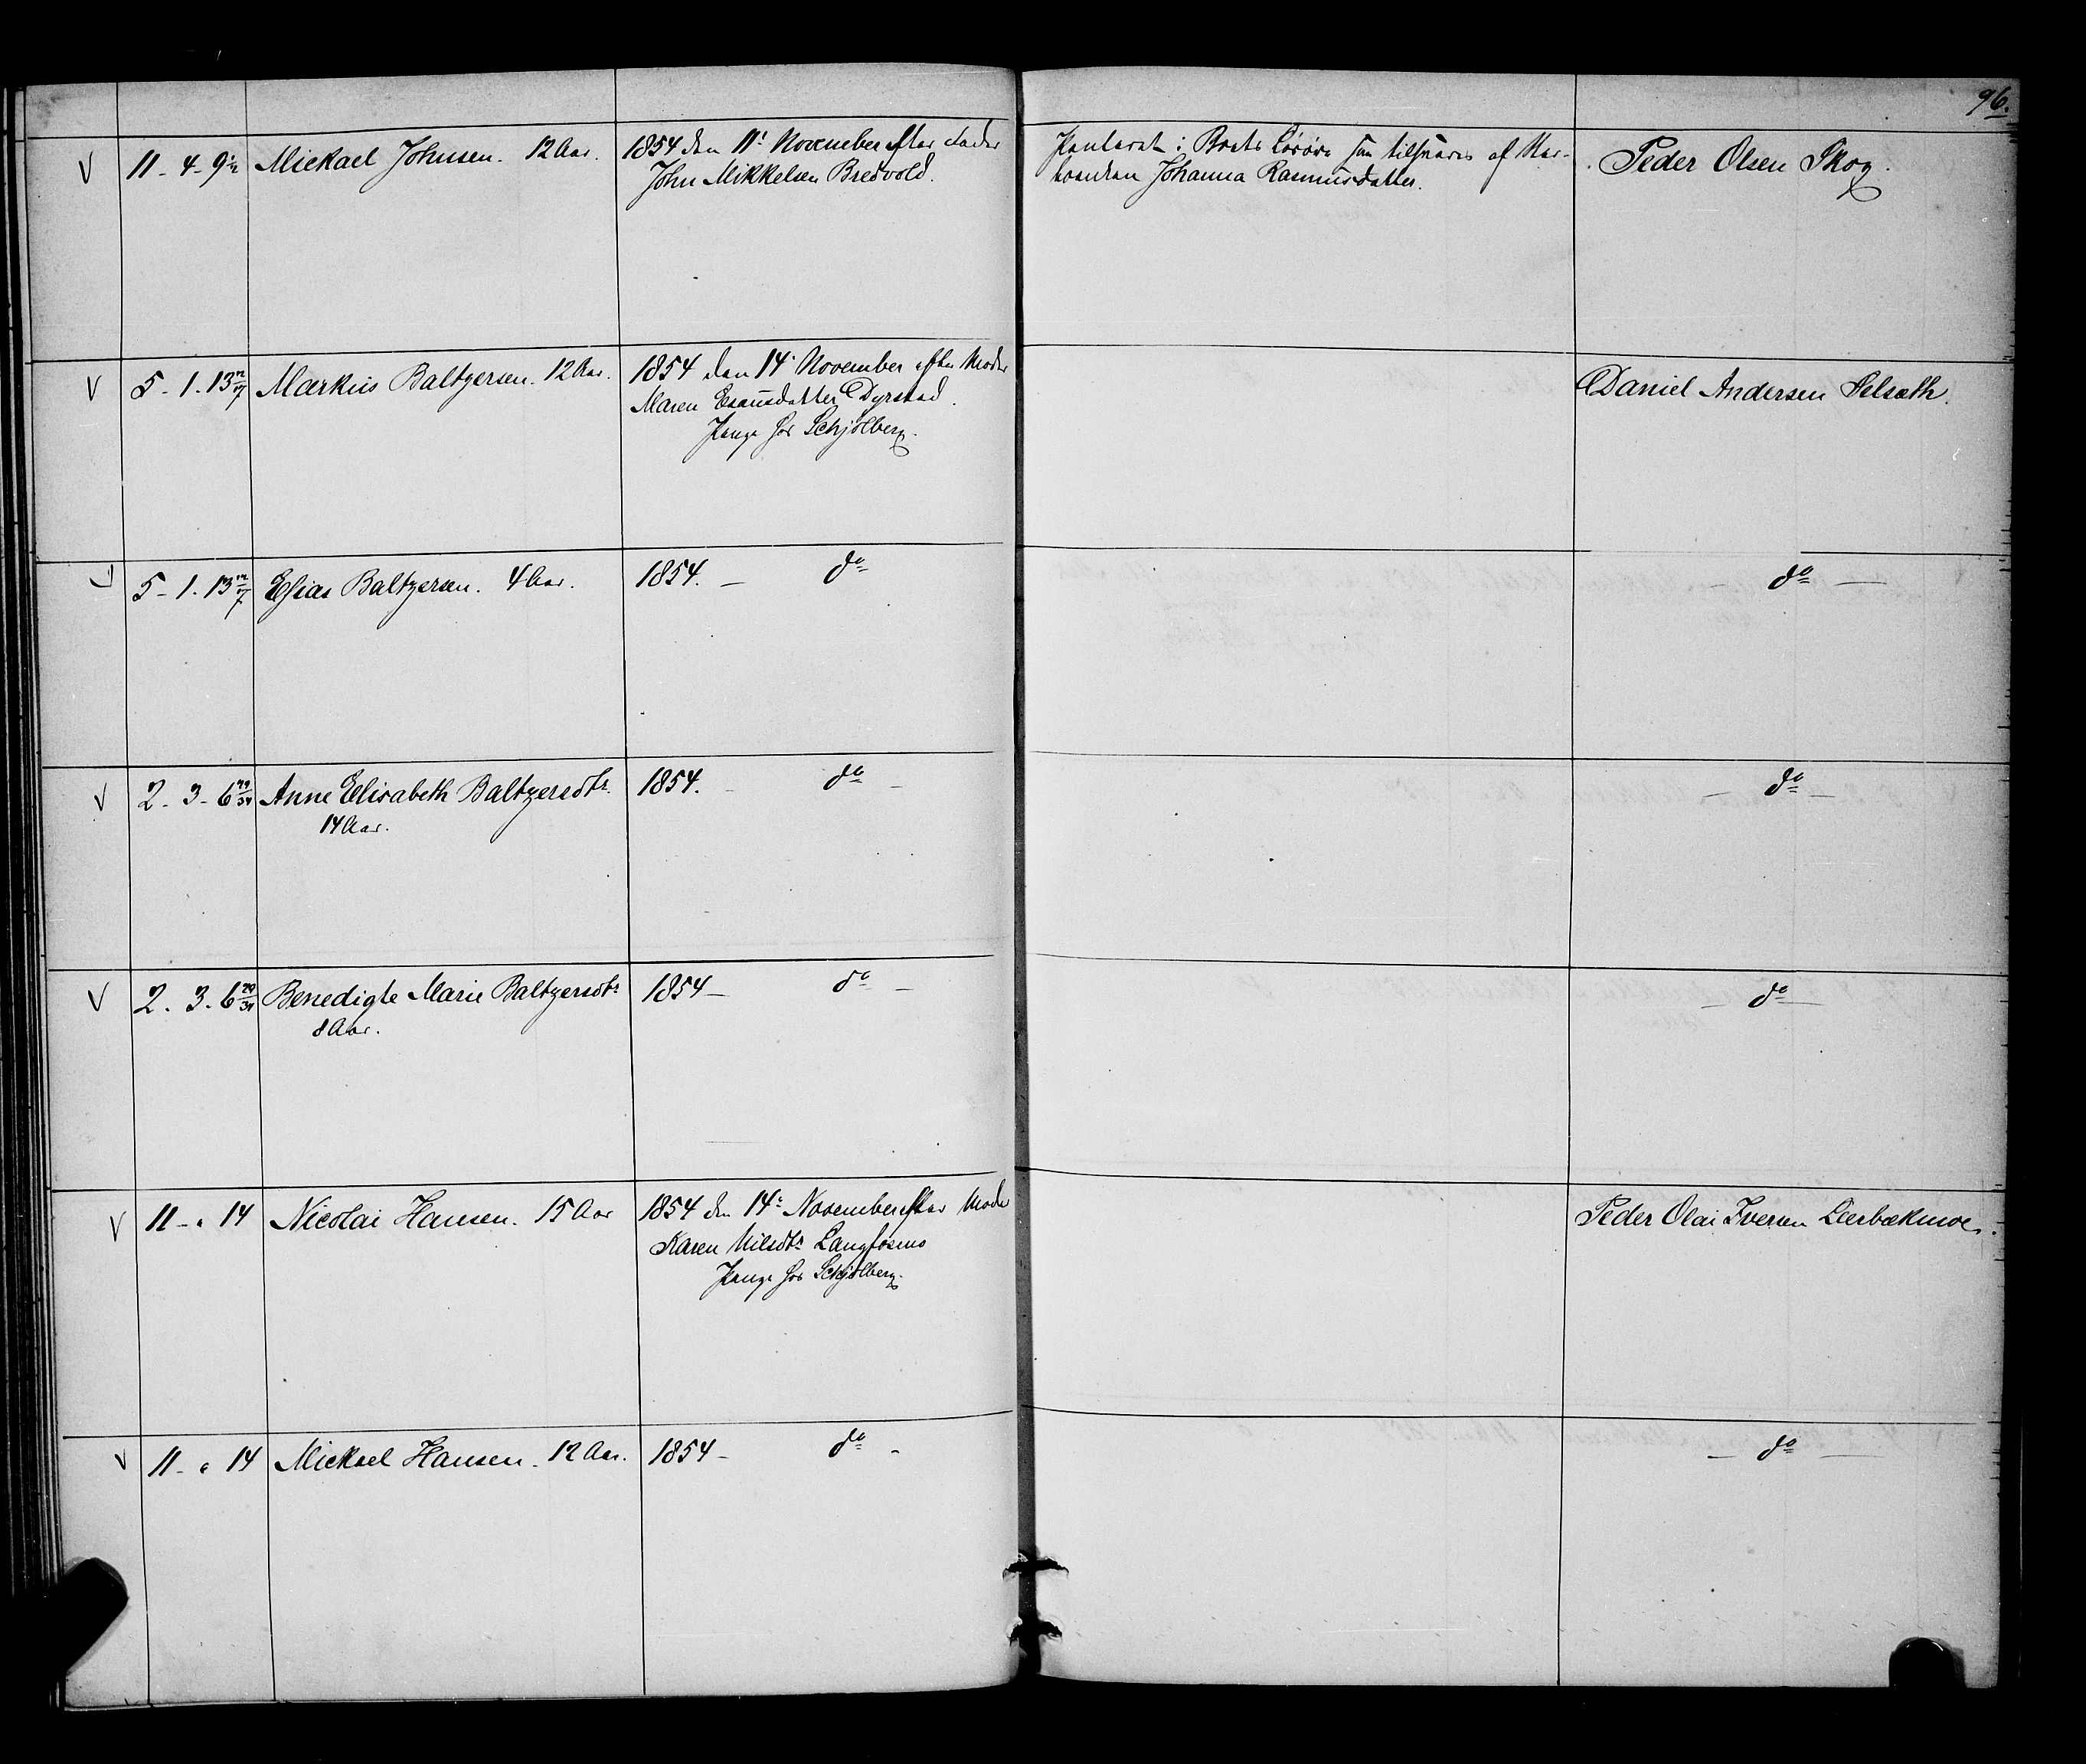 96.
V 11 - 4 - 9½ Mickael Johnsen. 12 Aar. 1854 den 11' November efter Fader Panteret i Boets Løsøre som tilsvares af Mar- Peder Olsen Skog.
John Mikkelsen Bredvold. Johanna Rasmusdatter.
V 5 - 1 - 13 5/7 Markus Baltzersen. 12 Aar. 1854 den 14' November efter Moder Daniel Andersen Selsøth.
Maren Esausdatter Dyrstad.
Penge hos Schjølberg.
5 - 1 - 13 Elias Baltzersen. 4 Aar. 1854. - do - do -
V 2 - 3 - 6 29/34 Anne Elisabeth Baltzersdtr. 1854. - do - - do -
14 Aar.
V 2 - 3 - 6 29/34 Benedigte Marie Baltzersdtr 1854 - do - - do -
8 Aar.
V 11 - " 14 Nicolai Hansen. 15 Aar 1854 den 14' November efter Moder Peder Olai Iversen Leerbækmoe.
Karen Nilsdtr Langfosmo
Penge hos Schjølberg.
V 11 - " 14 Mickael Hansen. 12 Aar. 1854 - do - - do -